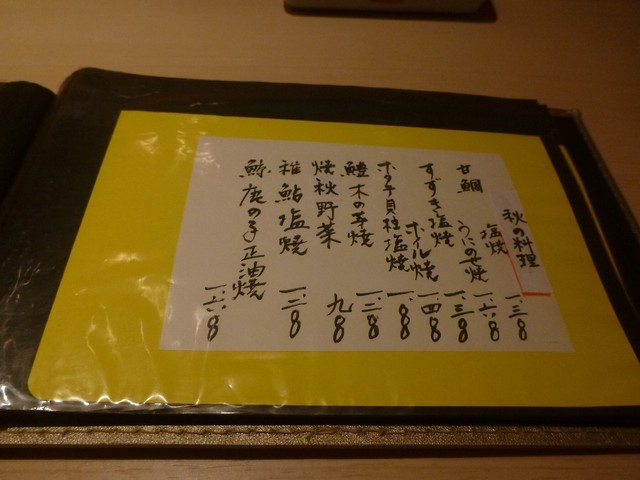 秋の料理 一.三〇〇
塩焼 一.六〇〇
甘鯛 うにのせ焼 一.三〇〇
ホイル焼 一.四〇〇
すずき塩焼
ホタテ貝柱塩焼
鱧木の芽焼 一.二〇〇
焼秋野菜 九〇〇
稚鮎塩焼 一.二〇〇
鯨鹿の子正油焼 一.六〇〇